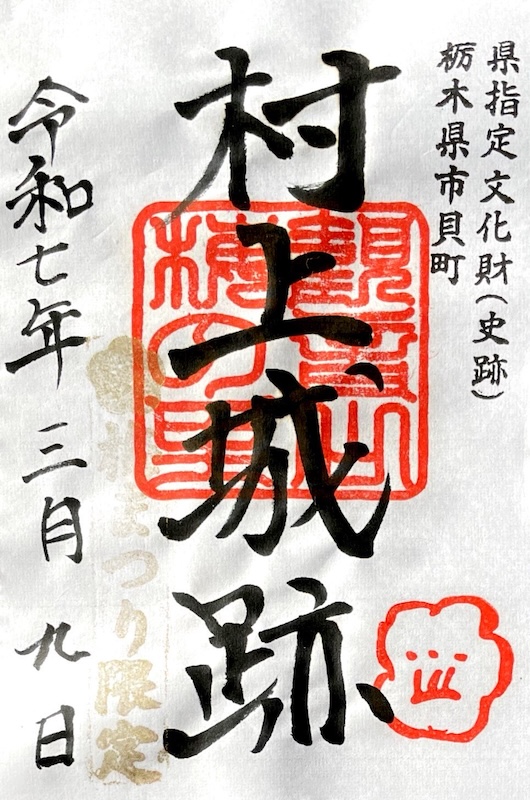 県指定文化財(史跡)
栃木県市貝町
村上城跡
観音山
梅の里
梅まつり限定
令和七年 三月 九日